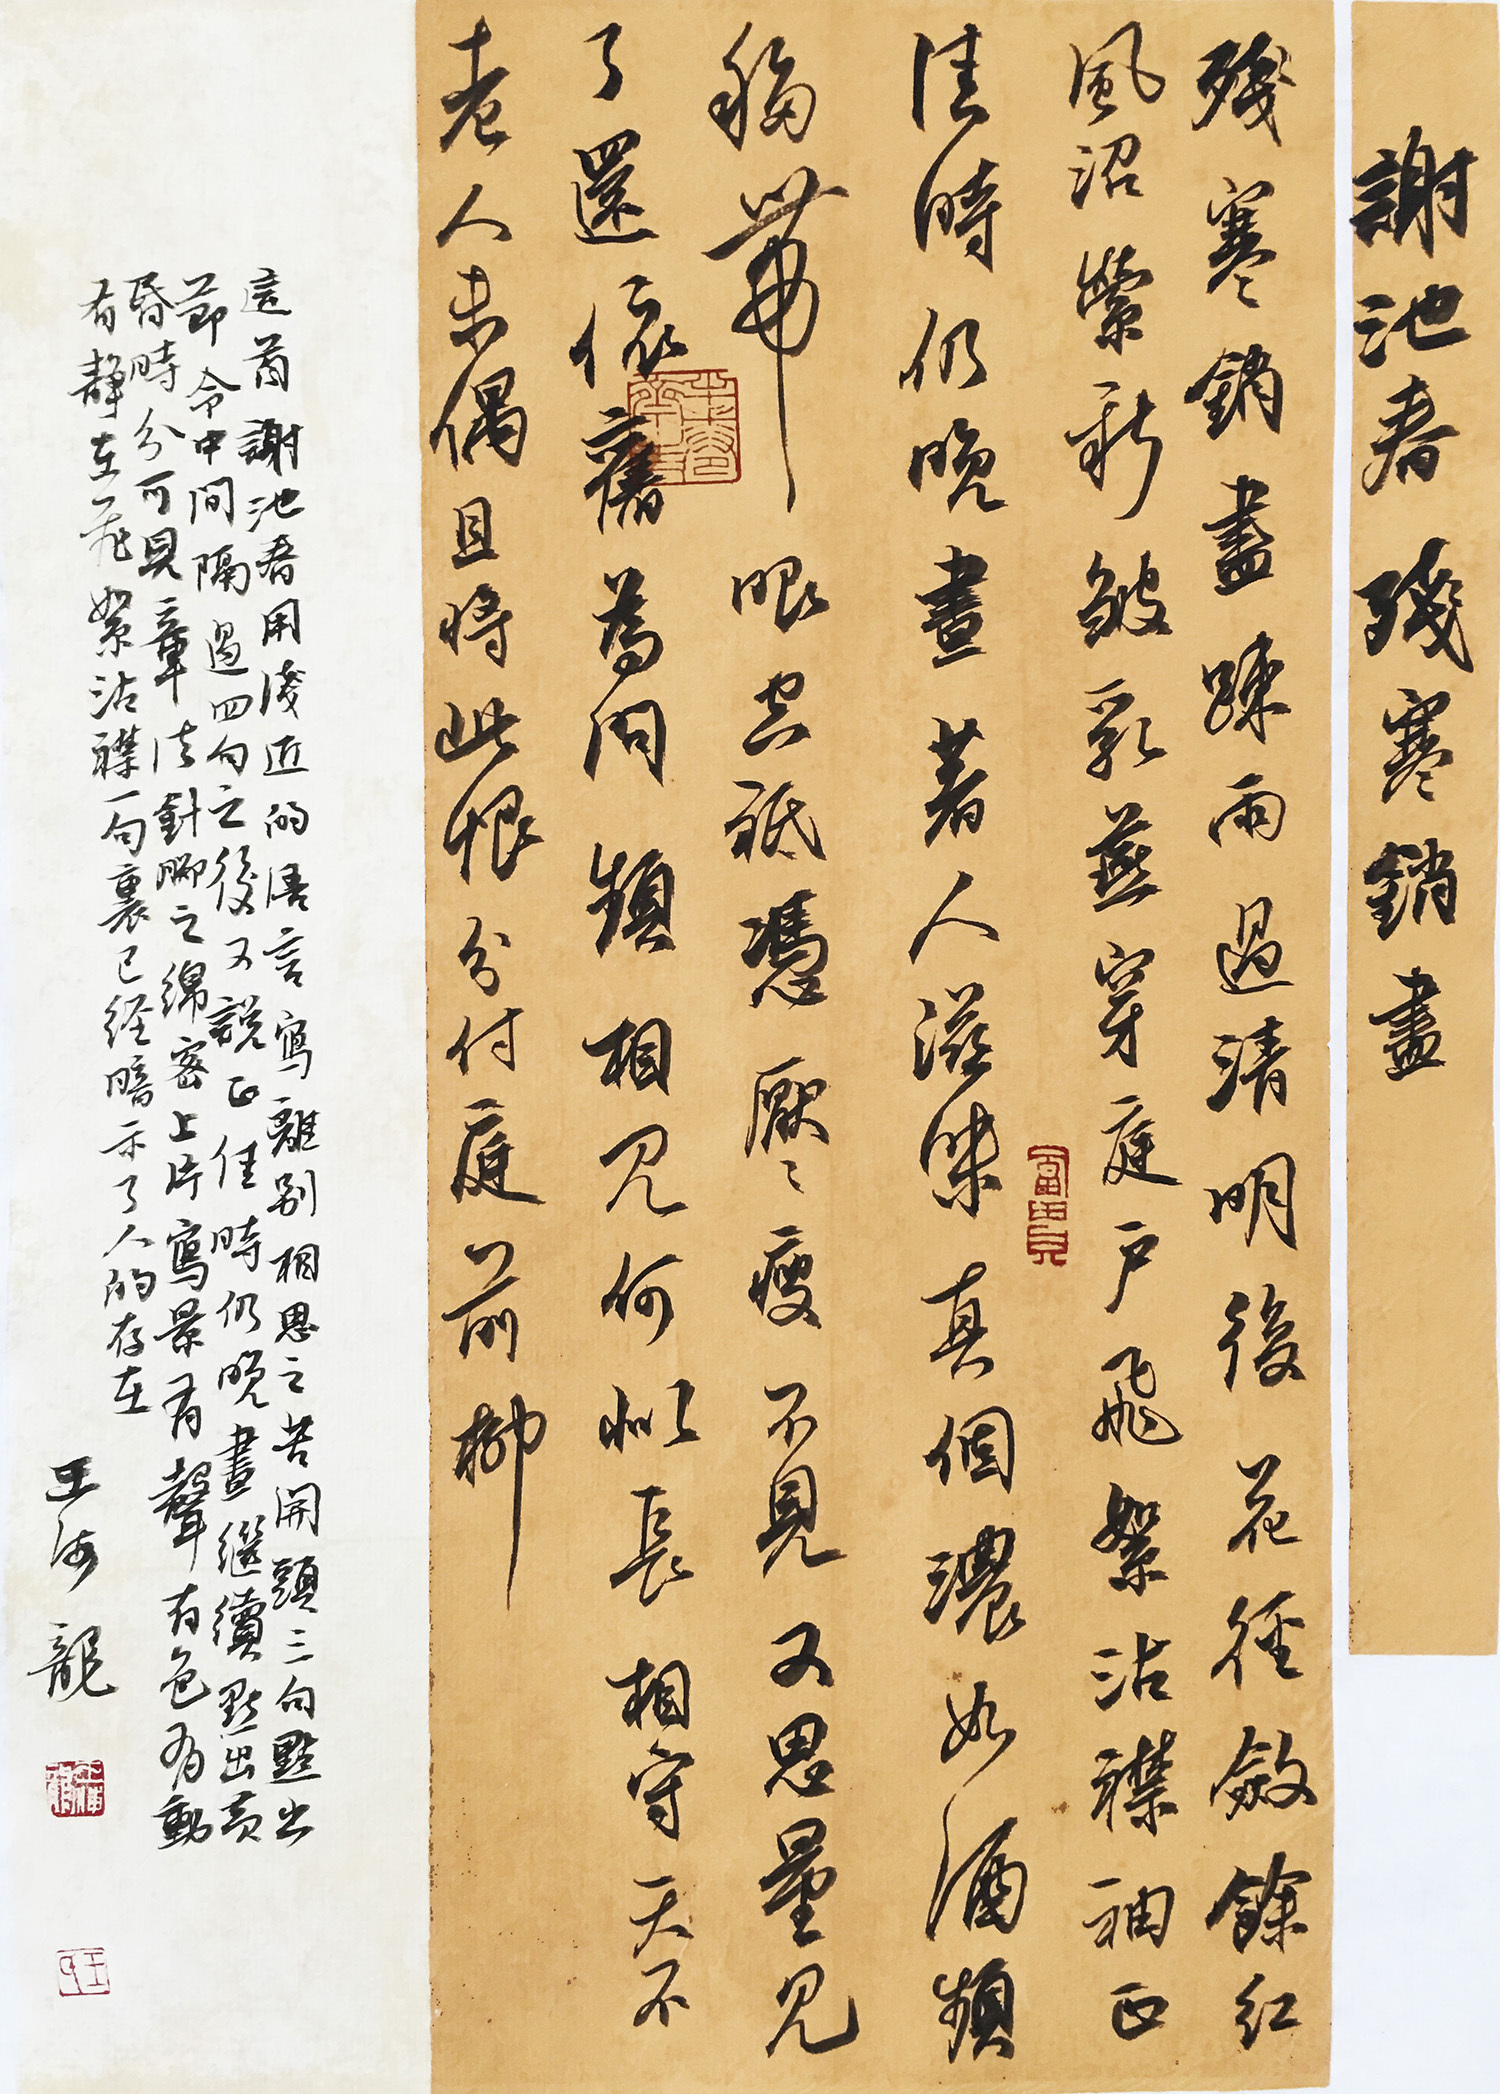 謝池春 殘寒銷盡
殘寒銷盡疎雨過清明後花徑斂餘紅
風沼縈新皺乳燕穿庭戶飛絮沾襟袖正
佳時仍晚晝著人滋味真個濃如酒頻
移帶眼空祗憑厭厭瘦不見又思量見
了還依舊為問頻相見何似長相守天不
老人未偶且將此恨分付庭前柳
這首謝池春用淺近的語言寫離別相思之苦開頭三句點出
節令中間隔過四句之後又說正佳時仍晚晝繼續點出黃
昏時分可見章法針腳之綿密上片寫景有聲有色有動
有靜在飛絮沾襟句裏已經暗示了人的存在
王海龍